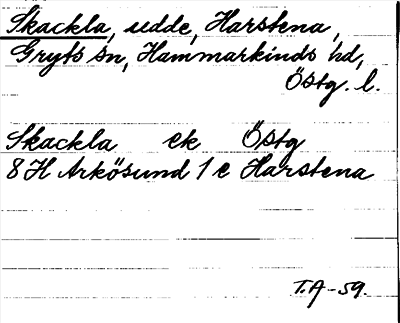 Skackla, udde, Harstena,
Gryts sn, Hammarkinds hd,
Östg. l.
Skackla ek Östg
8H Arkösund 1e Harstena
T.A-59.